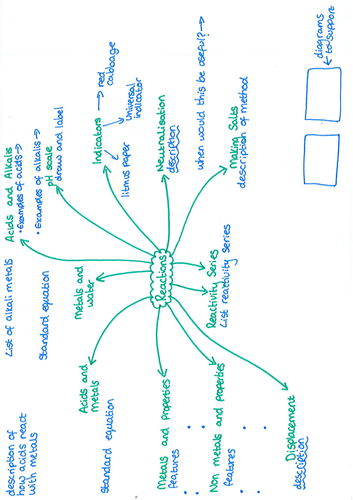 Reactions
Acids and Alkalis
• Examples of acids→
• Examples of alkalis→
pH scale
draw and label
Indicators → red
cabbage
universal
indicator
litmus paper
Neutralisation
description
when would this be useful?→
Making Salts
description of method
diagrams
to support
Reactivity Series
List reactivity series
Displacement
description
Non metals and Properties
features
Metals and Properties
features
Acids and
Metals
Standard equation
description of
how acids react
with metals
Metals and
water
Standard equation
List of alkali metals